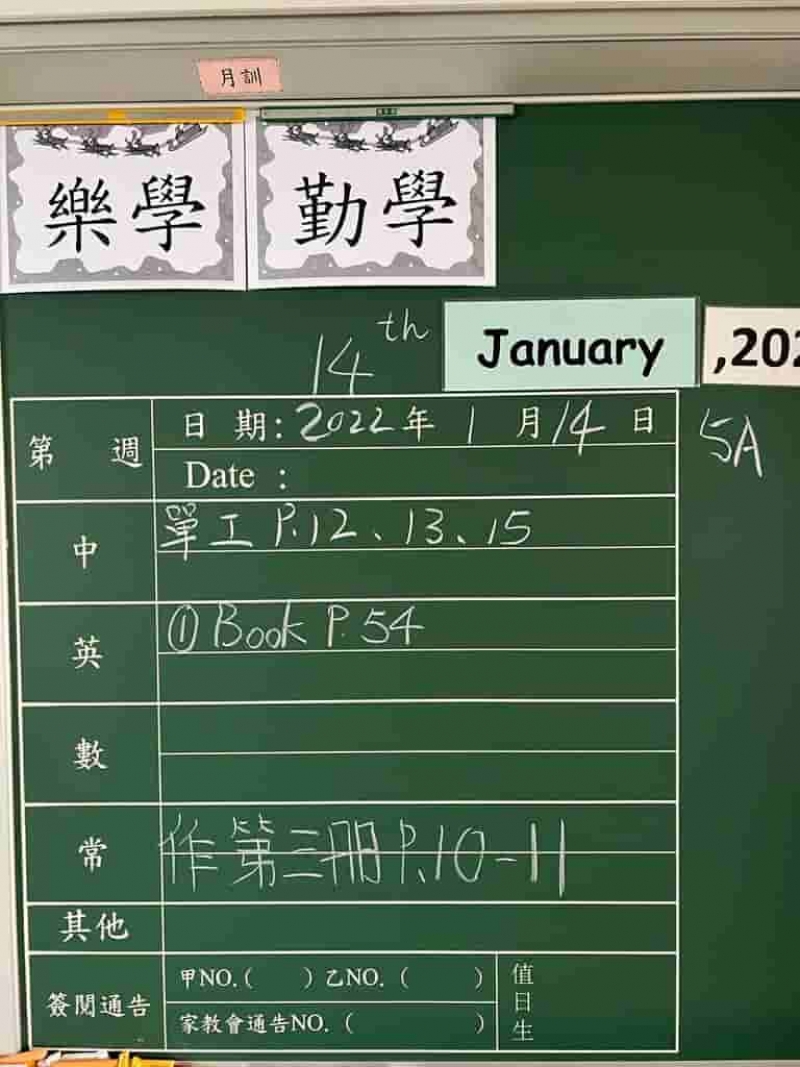 月訓
樂學
勤學
14th January ,202
第 週
日 期：2022年 1 月14 日
5A
Date :
中
單工 P.12、13、15
英
① Book P.54
數
常
作第三冊P.10-11
其他
簽閱通告
甲NO.( ) 乙NO. ( )
家教會通告NO. ( )
值日生